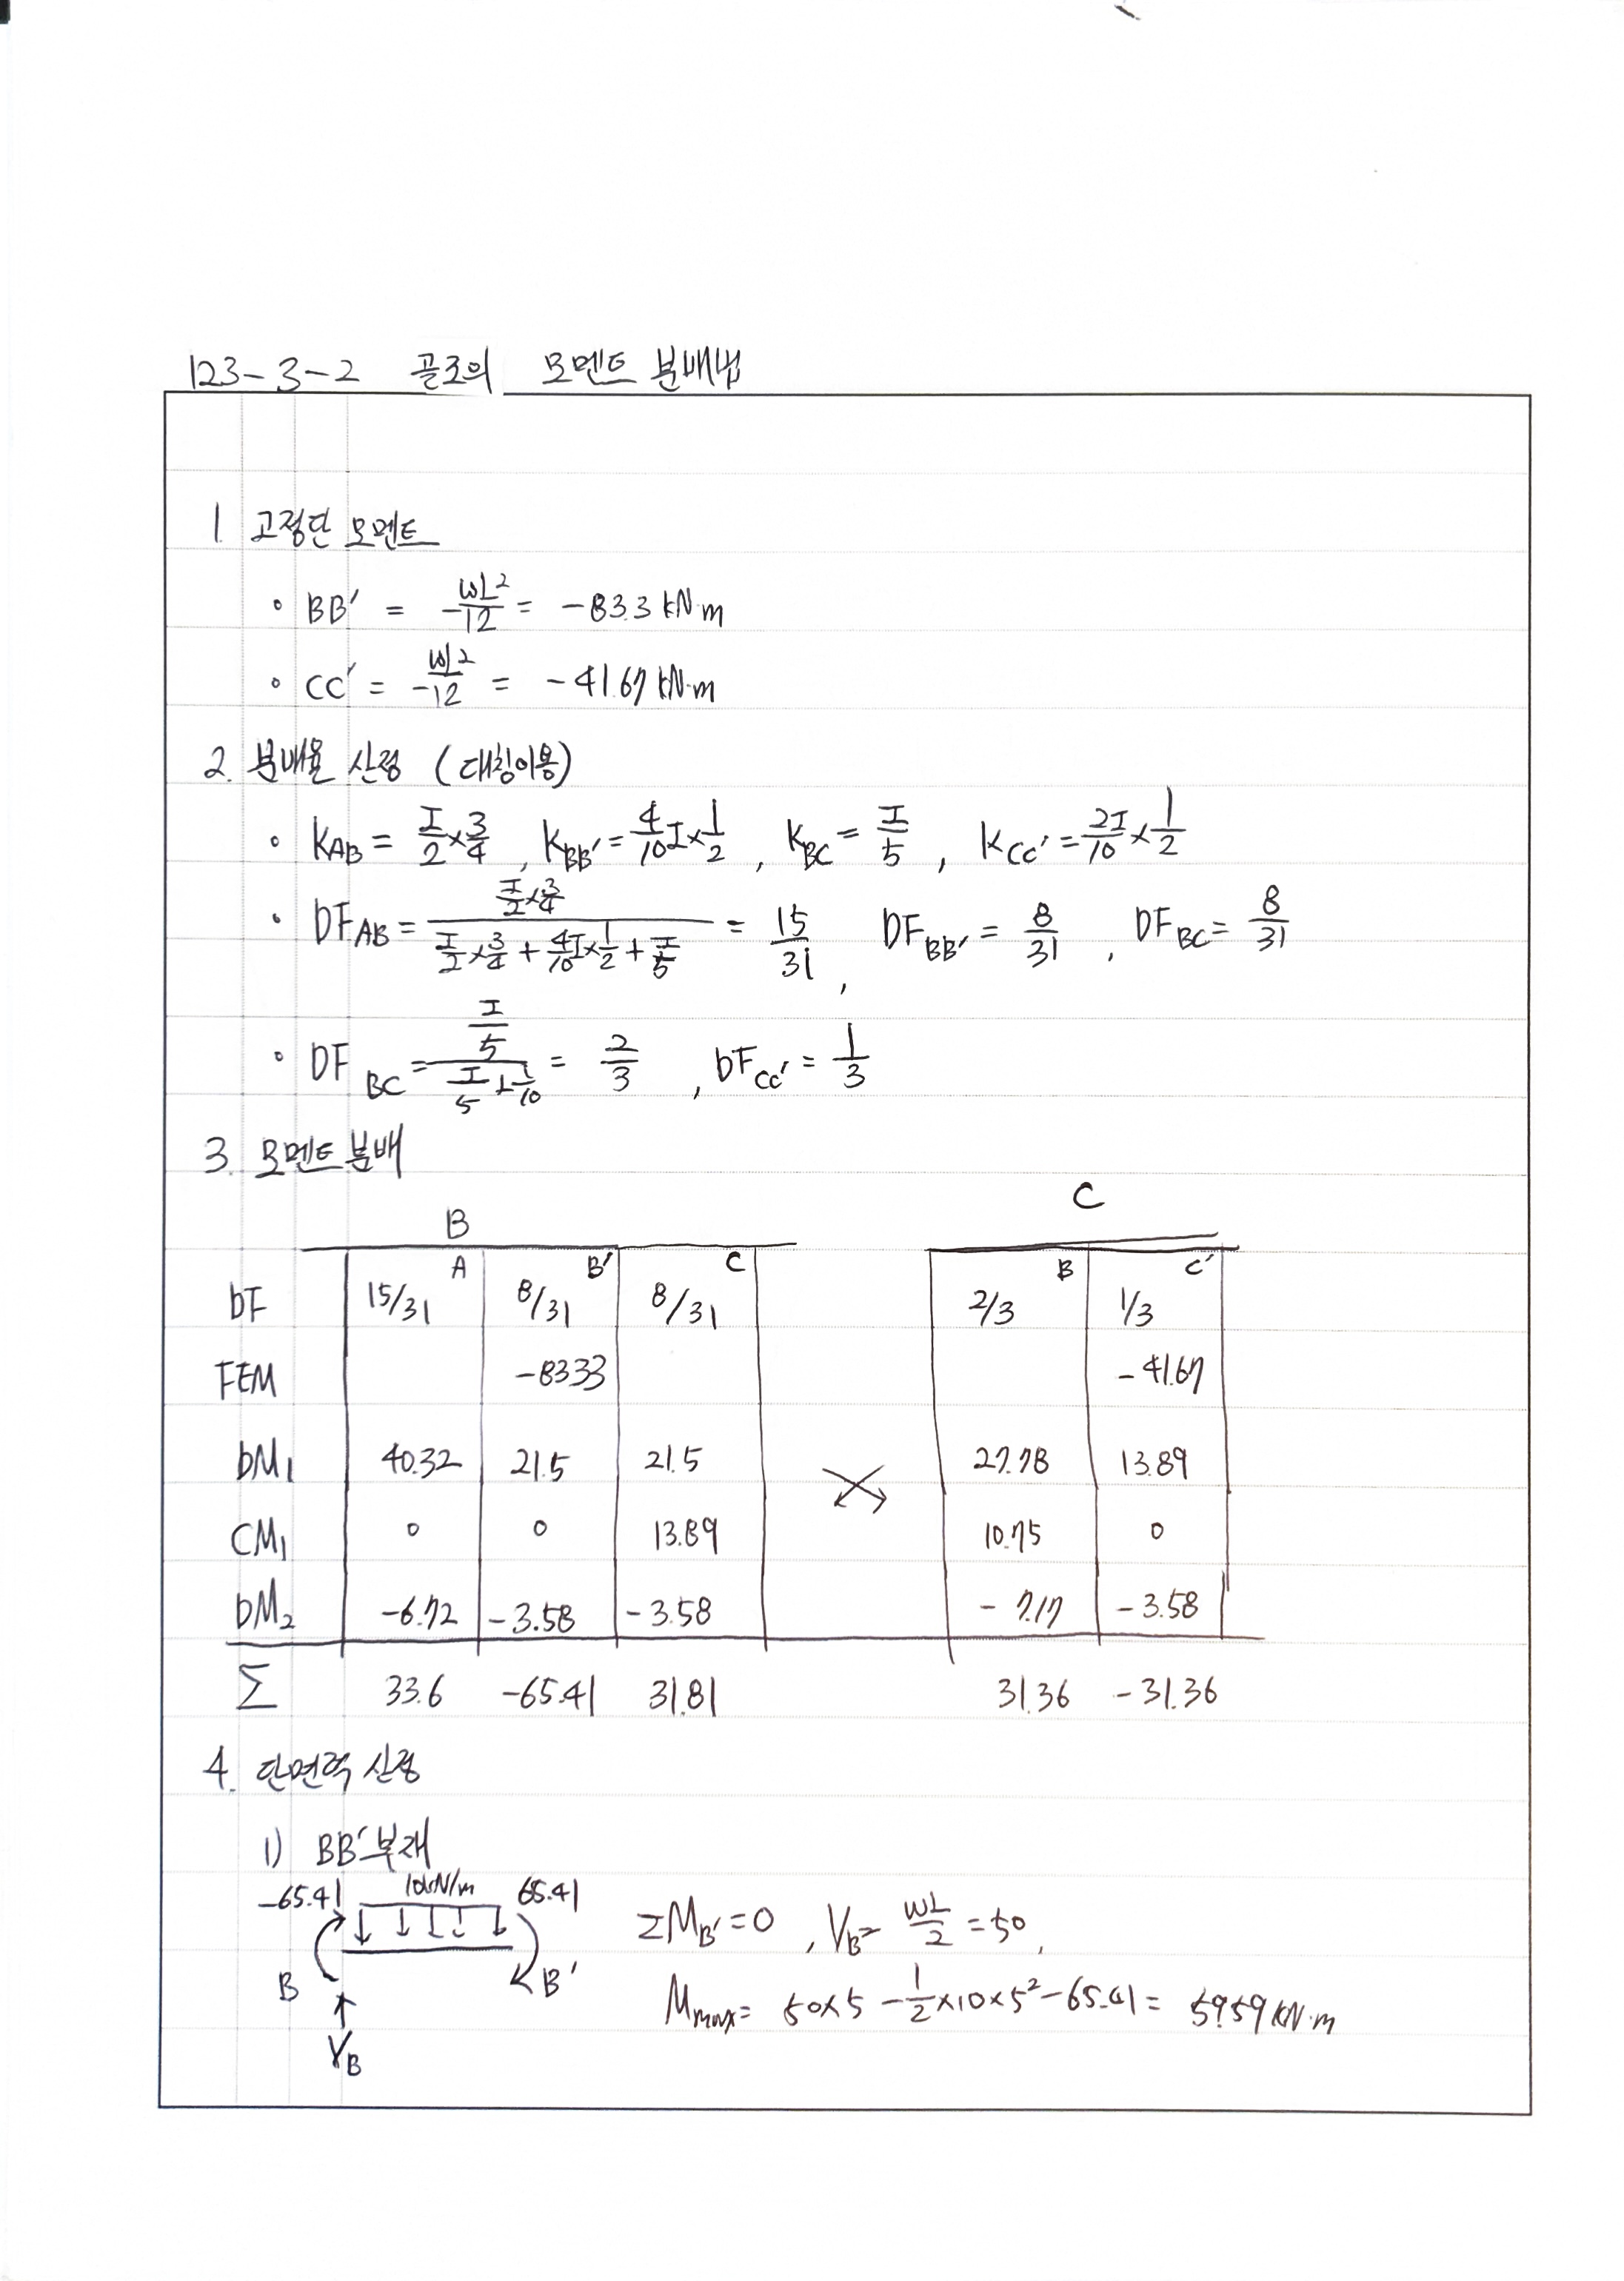 123-3-2 골조의 모멘트 분배법
1. 고정단 모멘트
• BB' = -wL²/12 = -83.3 kN·m
• CC' = -wL²/12 = -41.67 kN·m
2. 분배율 산정 (대칭이용)
• KAB = I/2 × 3/4 , KBB' = 4/10 I × 1/2 , KBC = I/5 , KCC' = 2I/10 × 1/2
• DFAB = (I/2 × 3/4) / (I/2 × 3/4 + 4I/10 × 1/2 + I/5) = 15/31 , DFBB' = 8/31 , DFBC = 8/31
• DFBC = (I/5) / (I/5 + I/10) = 2/3 , DFCC' = 1/3
3. 모멘트 분배
B C
A B' C B C'
DF 15/31 8/31 8/31 2/3 1/3
FEM -83.33 -41.67
DM1 40.32 21.5 21.5 27.78 13.89
CM1 0 0 13.89 10.75 0
DM2 -6.72 -3.58 -3.58 -7.17 -3.58
Σ 33.6 -65.41 31.81 31.36 -31.36
4. 단면력 산정
1) BB' 부재
-65.41 10kN/m 65.41
B B'
VB
ΣMB' = 0 , VB = wL/2 = 50,
Mmax = 50×5 - 1/2×10×5² - 65.41 = 59.59 kN·m